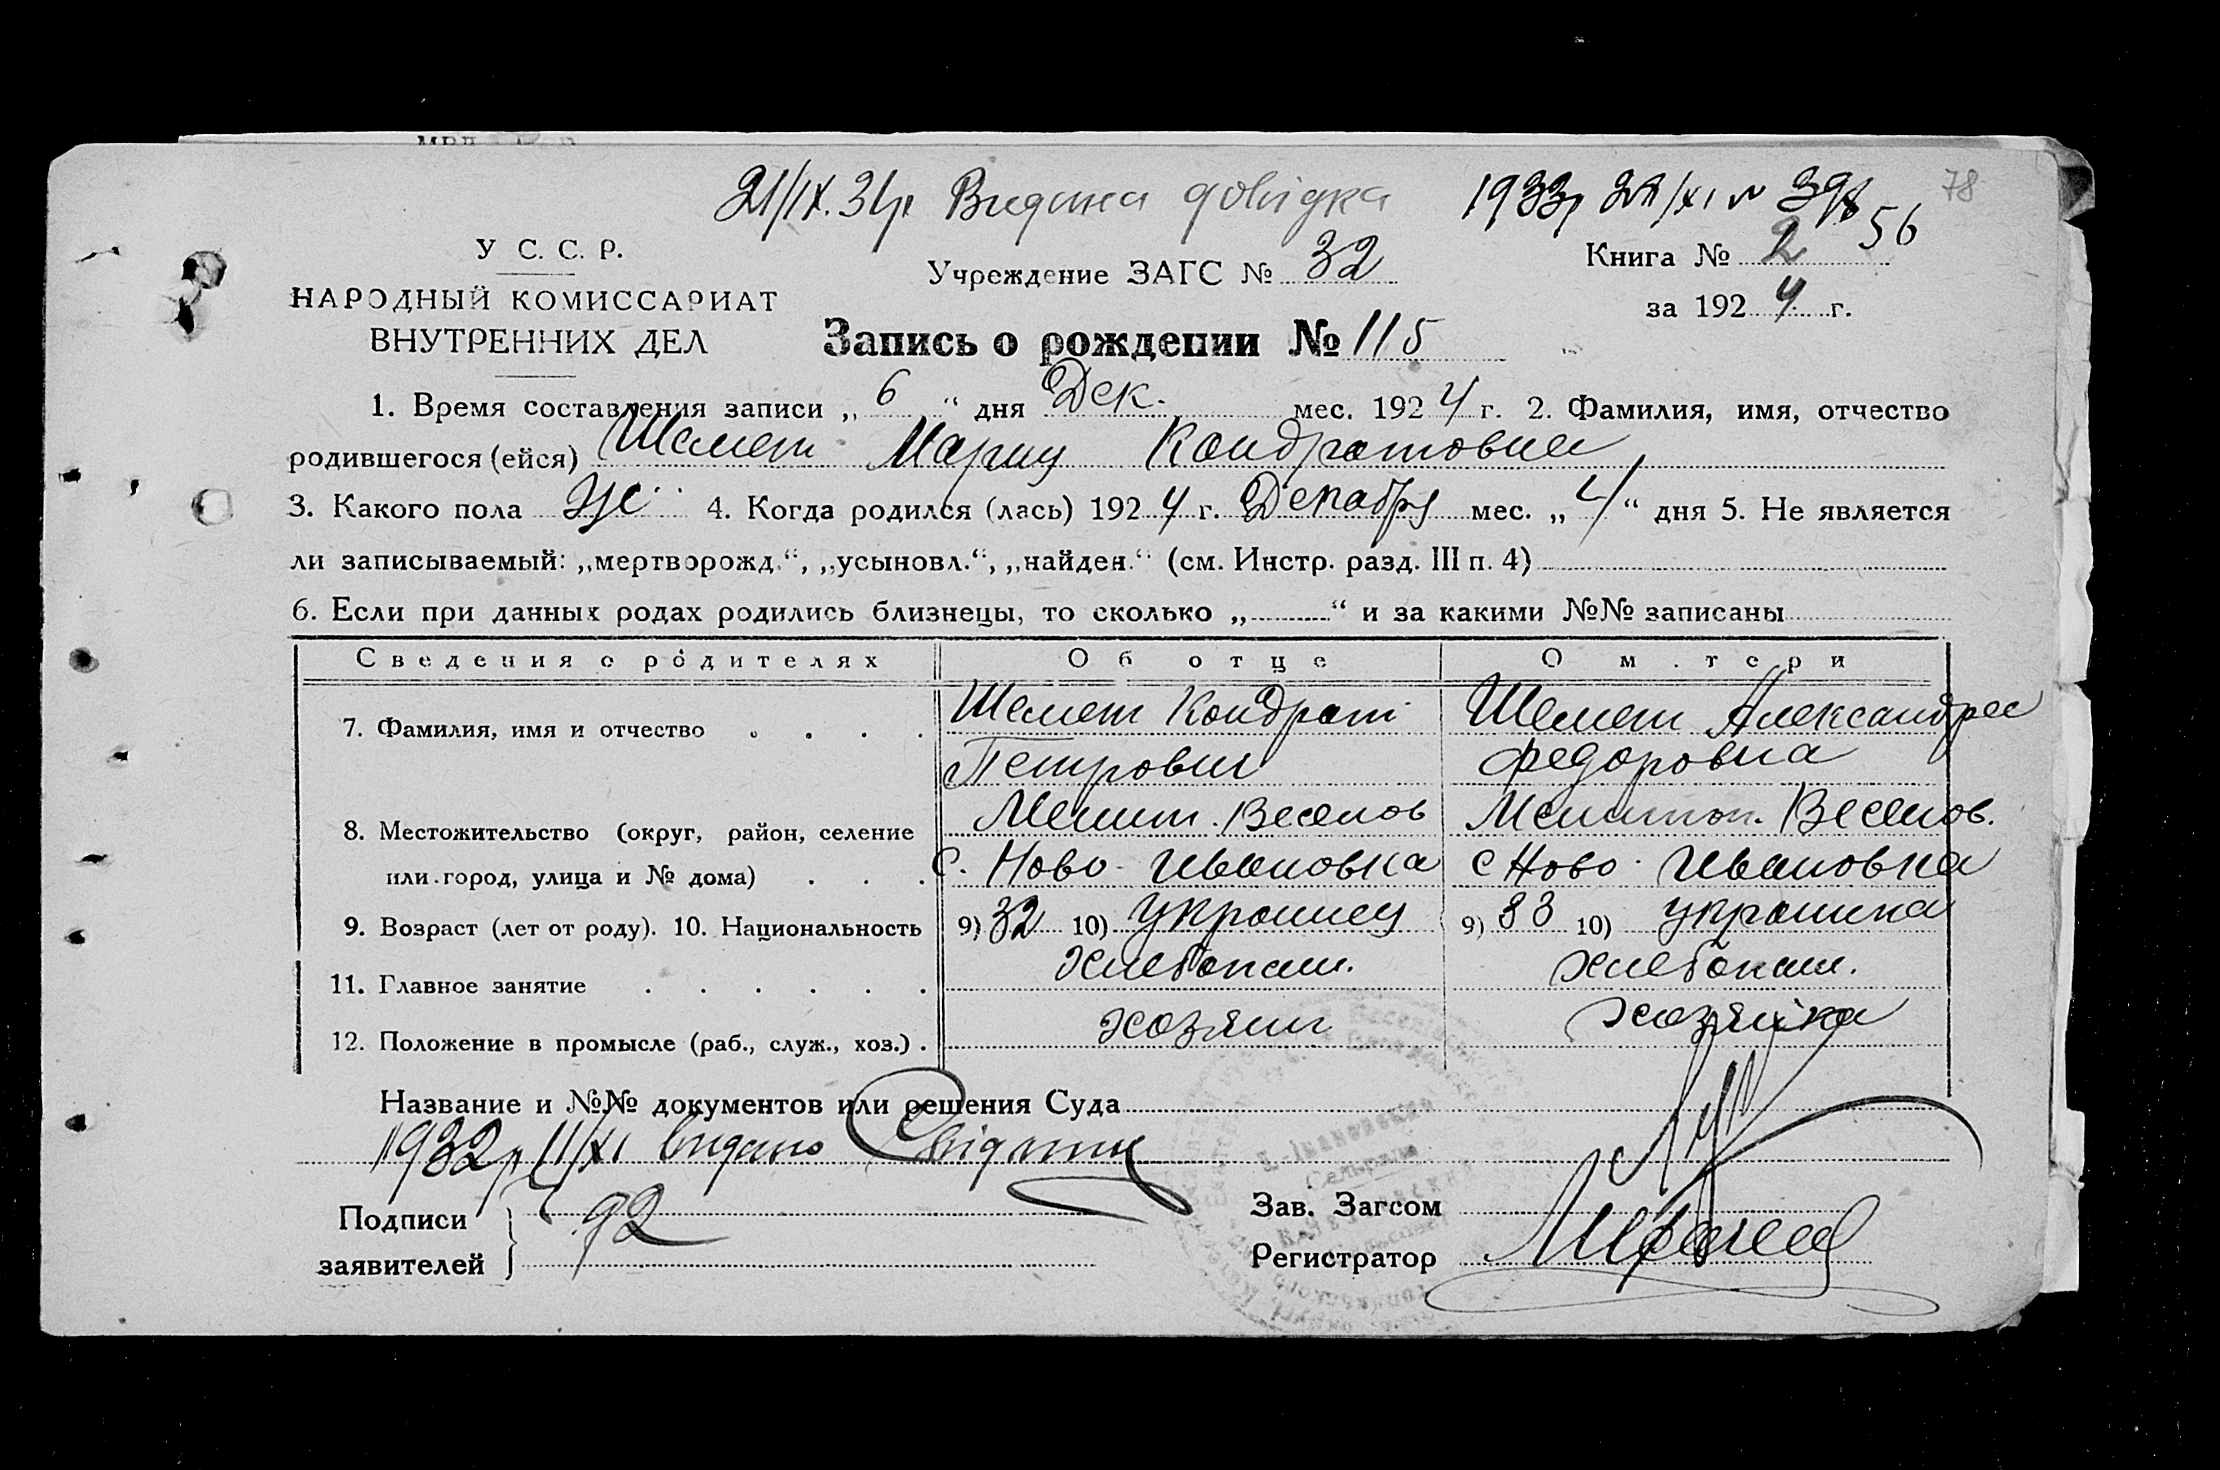 21/IX.34р. Видана довідка 1933р 22/XI № 398 78
56
У С. С. Р.
НАРОДНЫЙ КОМИССАРИАТ
ВНУТРЕННИХ ДЕЛ
Учреждение ЗАГС № 32
Книга № 2
за 1924 г.
Запись о рождении № 115
1. Время составления записи „ 6 “ дня Дек. мес. 1924 г. 2. Фамилия, имя, отчество
родившегося (ейся) Шемет Марию Кондратовна
3. Какого пола ж 4. Когда родился (лась) 1924 г. Декабря мес. „ 4 “ дня 5. Не является
ли записываемый: „мертворожд.“, „усыновл.“, „найден.“ (см. Инстр. разд. III п. 4)
6. Если при данных родах родились близнецы, то сколько „ “ и за какими №№ записаны
Сведения о родителях Об отце О м.тери
7. Фамилия, имя и отчество Шемет Кондрат Шемет Александра
Петрович Федоровна
8. Местожительство (округ, район, селение Мелит. Веселов Мелитоп. Веселов.
или город, улица и № дома) с. Ново-Ивановка с Ново-Ивановка
9. Возраст (лет от роду). 10. Национальность 9) 32 10) украинец 9) 33 10) украинка
11. Главное занятие хлебопаш. хлебопаш.
12. Положение в промысле (раб., служ., хоз.) хозяин хозяйка
Название и №№ документов или решения Суда
1932р 11/XI видано Свідоцт
92
Подписи
заявителей
Зав. Загсом
Регистратор
Н.-Ивановский
Сельрада